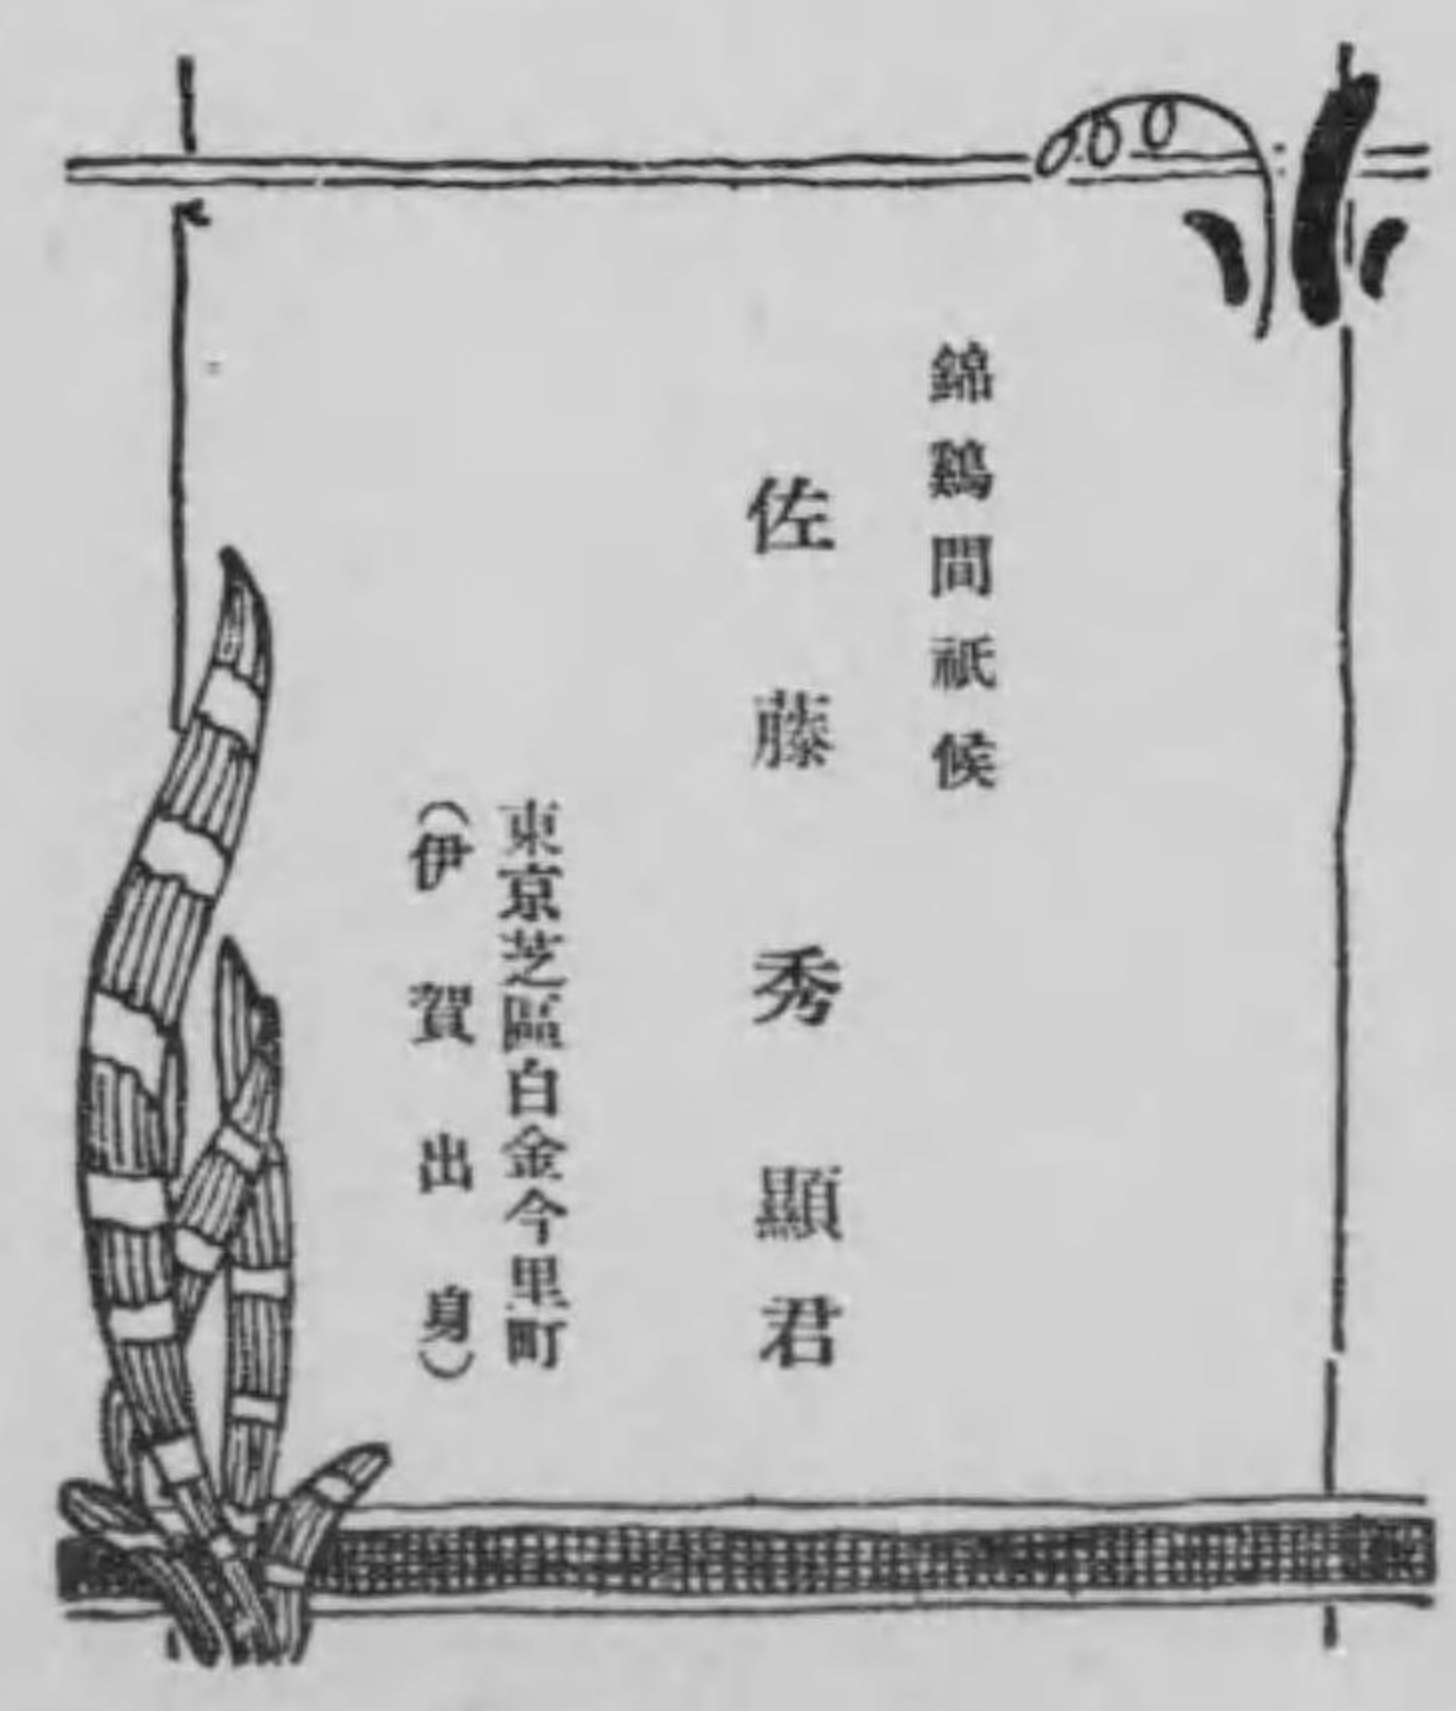 錦鷄間祇候
佐藤秀顯君
東京芝區白金今里町
(伊賀出身)